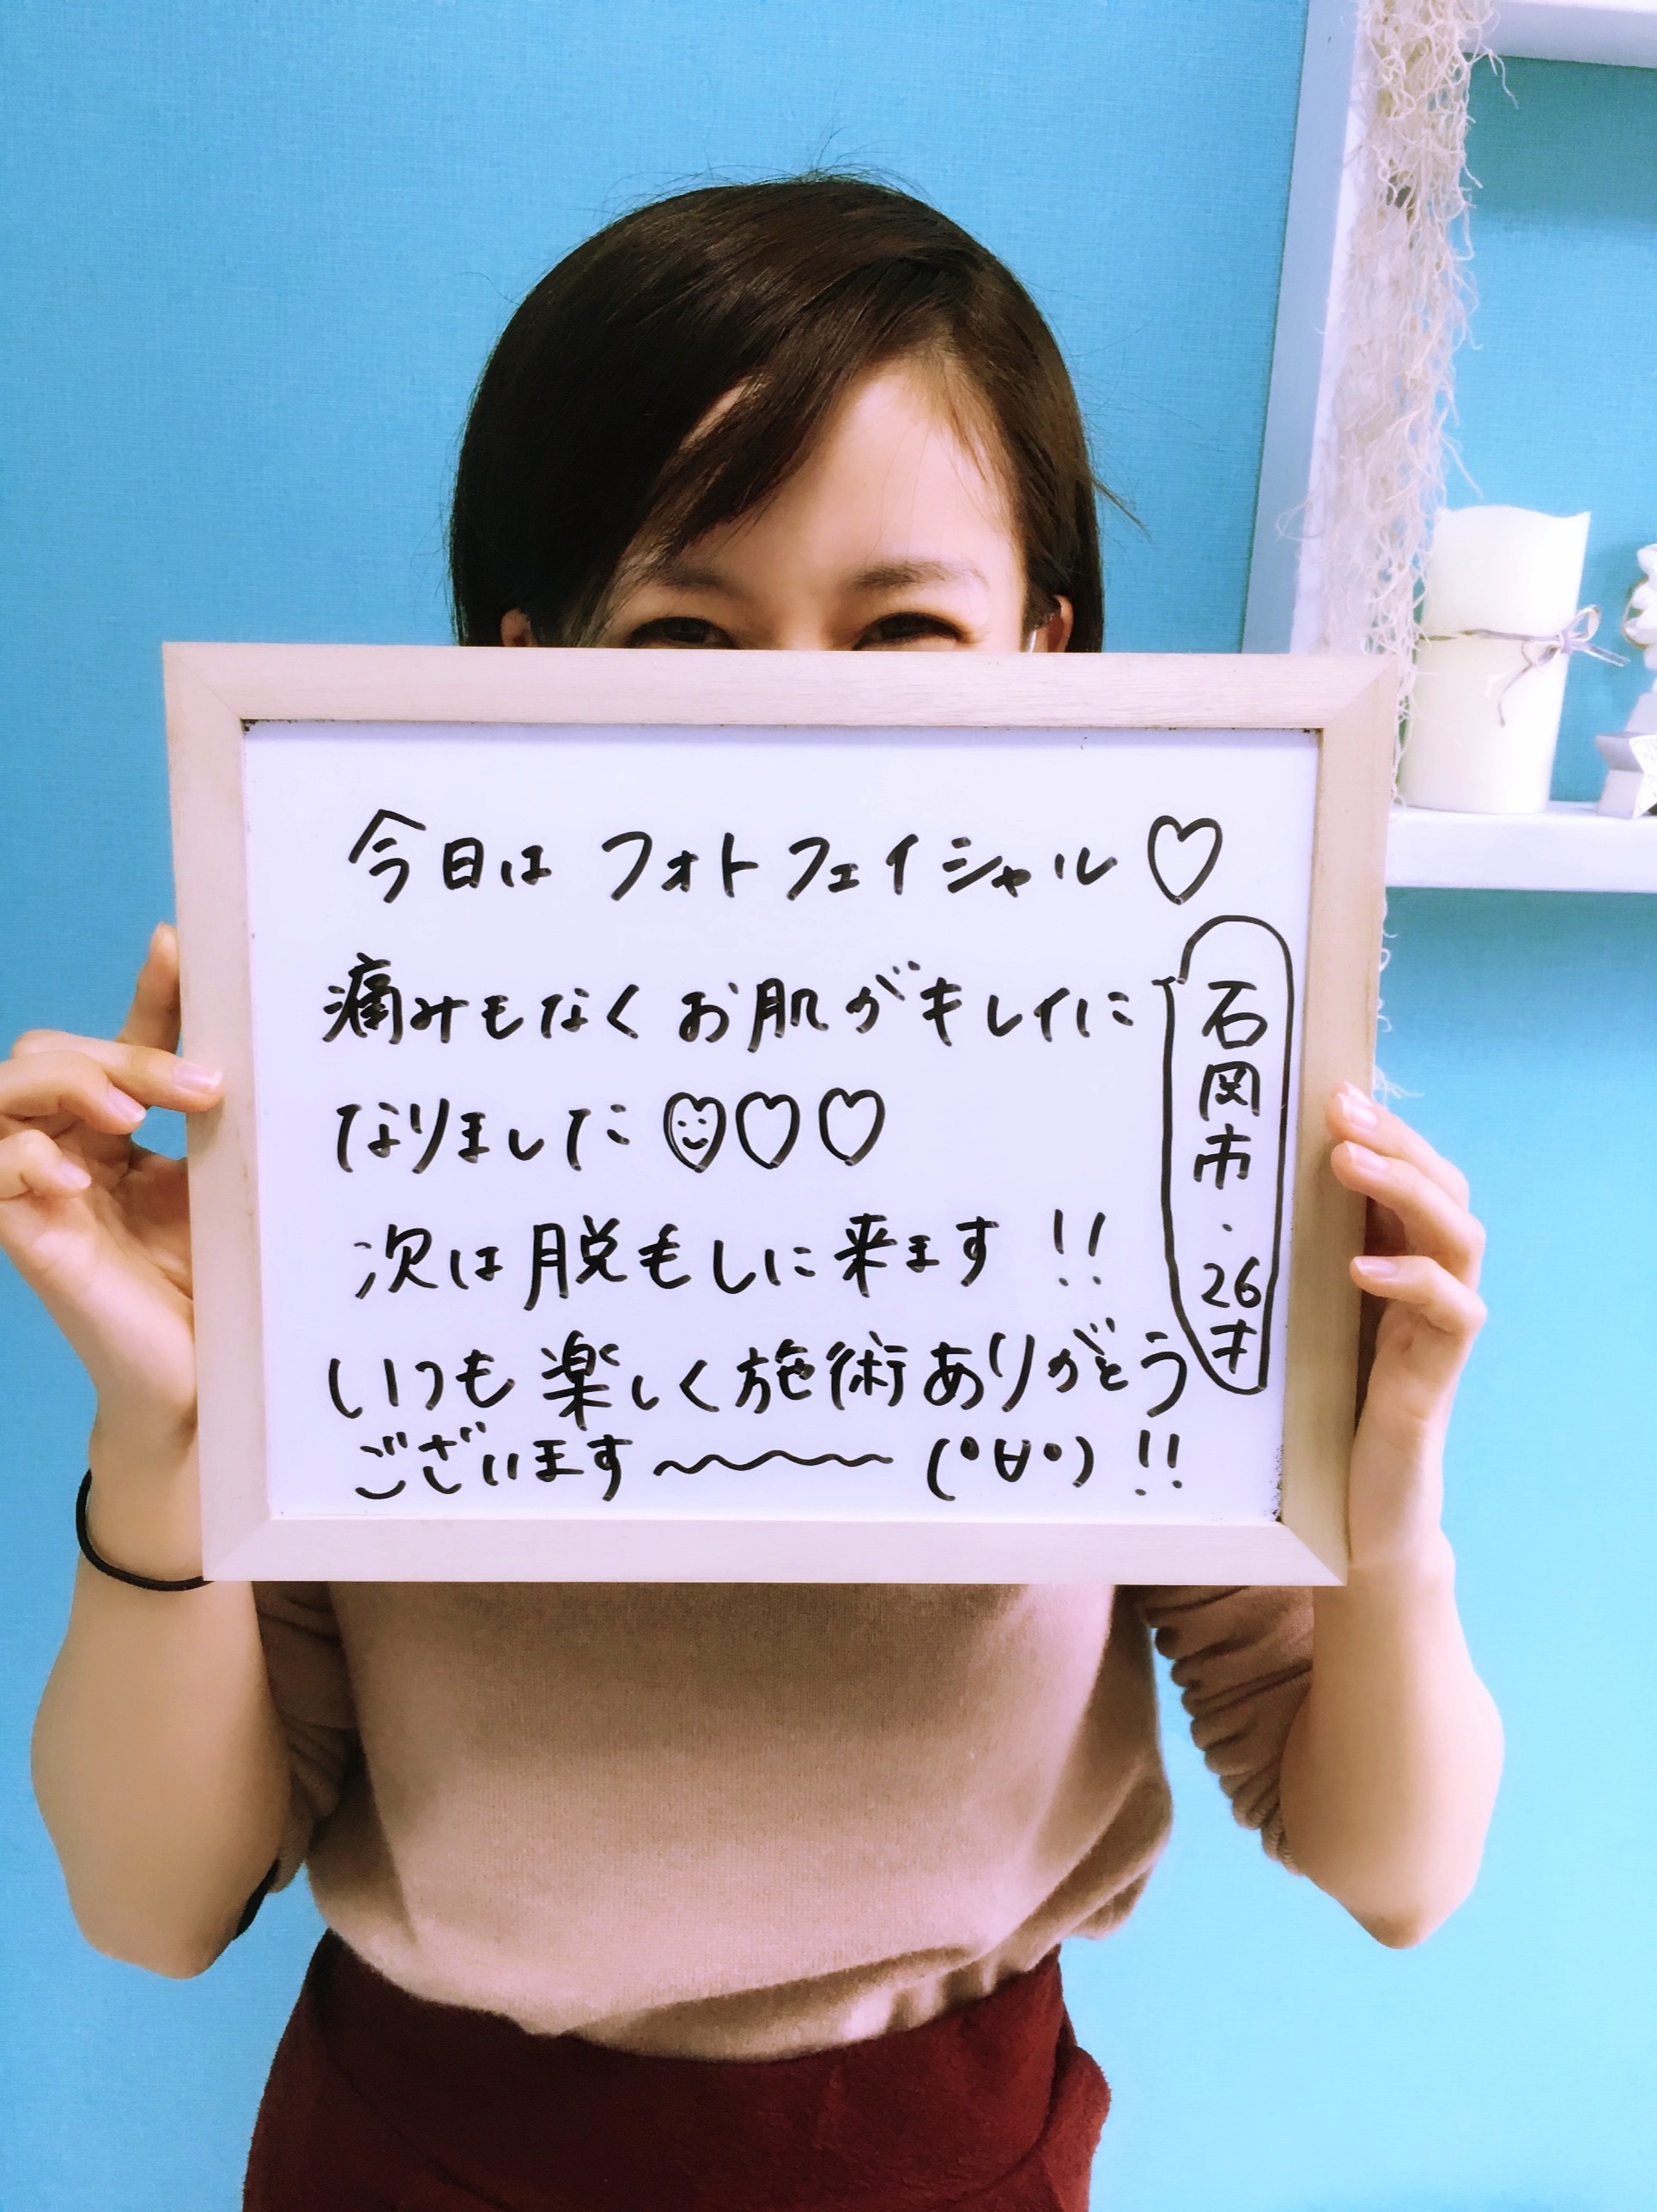 今日は フォトフェイシャル♡
痛みもなくお肌がキレイに
なりました♡♡♡
次は脱毛しに来ます!!
いつも楽しく施術ありがとう
ございます〜〜〜 (°∀°)!!
石岡市・26才